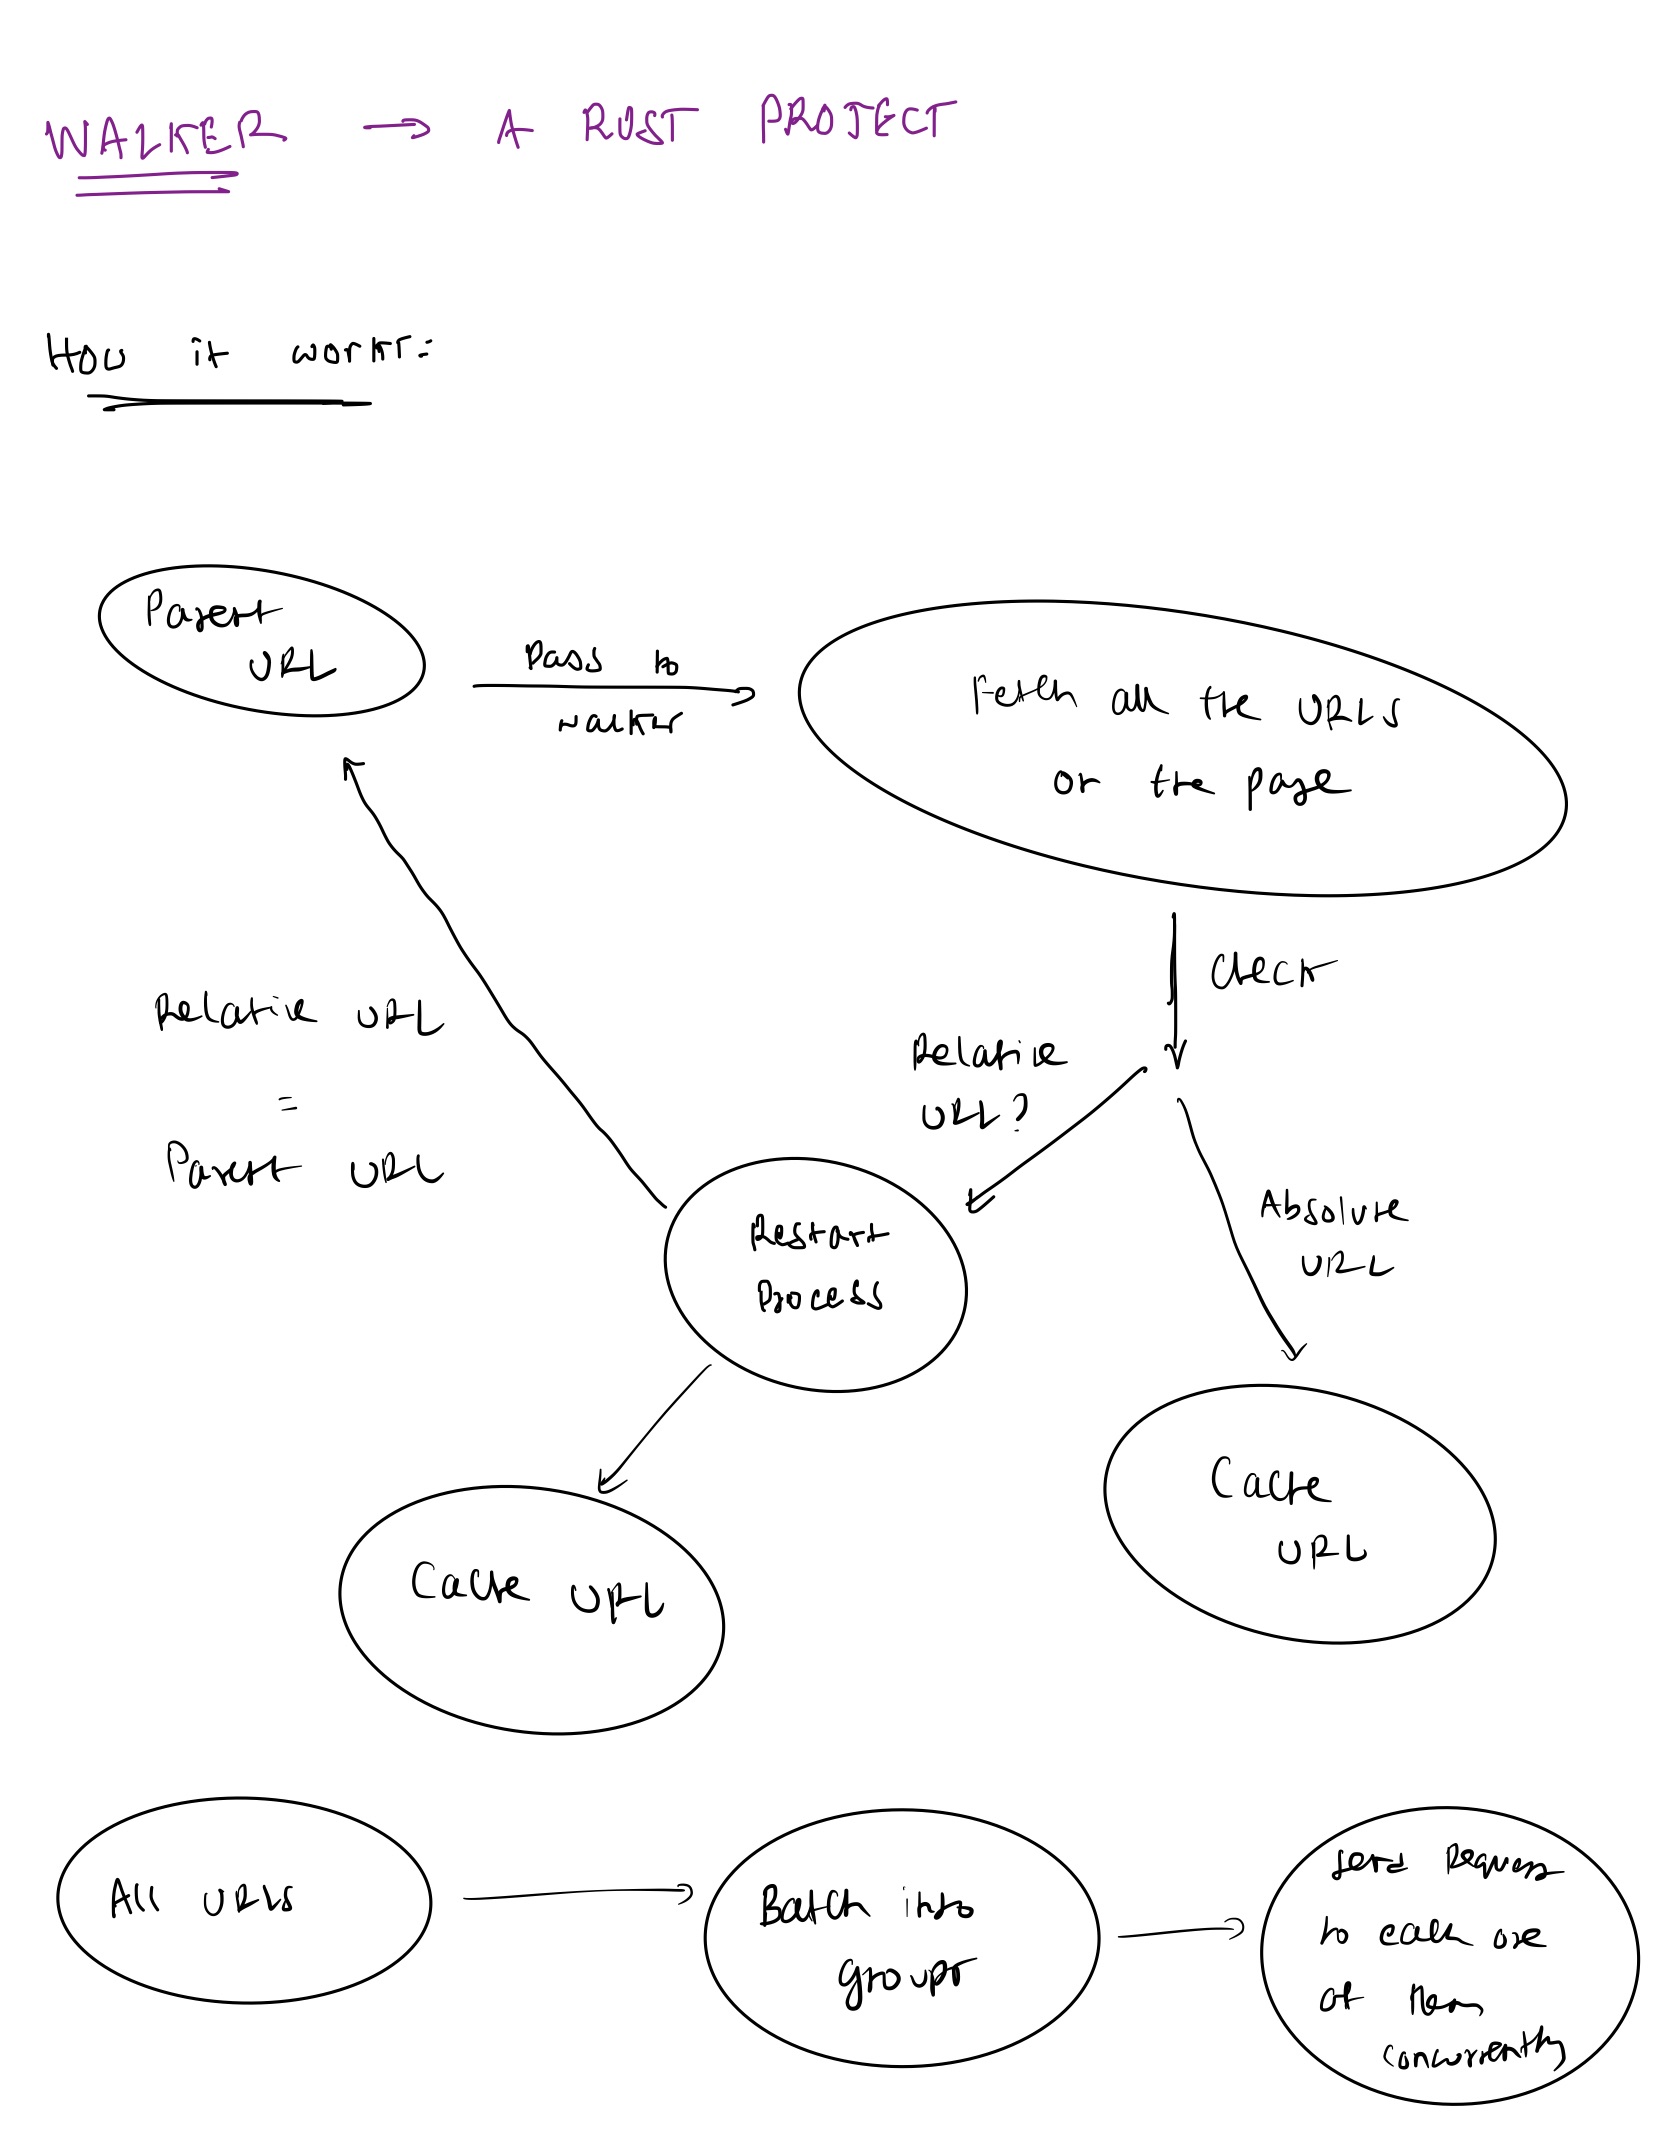 WALKER → A RUST PROJECT
How it works:
Parent
URL
Pass to
walker
Fetch all the URLs
on the page
Check
Relative
URL?
Relative URL
=
Parent URL
Absolute
URL
Restart
Process
Cache
URL
Cache URL
All URLs
Batch into
groups
send Request
to each one
of them
concurrently